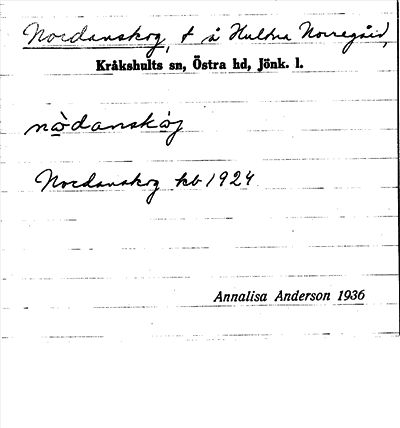 Nordanskog, t å Hultna Norregård,
Kråkshults sn, Östra hd, Jönk. l.
nòdanskòj
Nordanskog kb 1924
Annalisa Anderson 1936